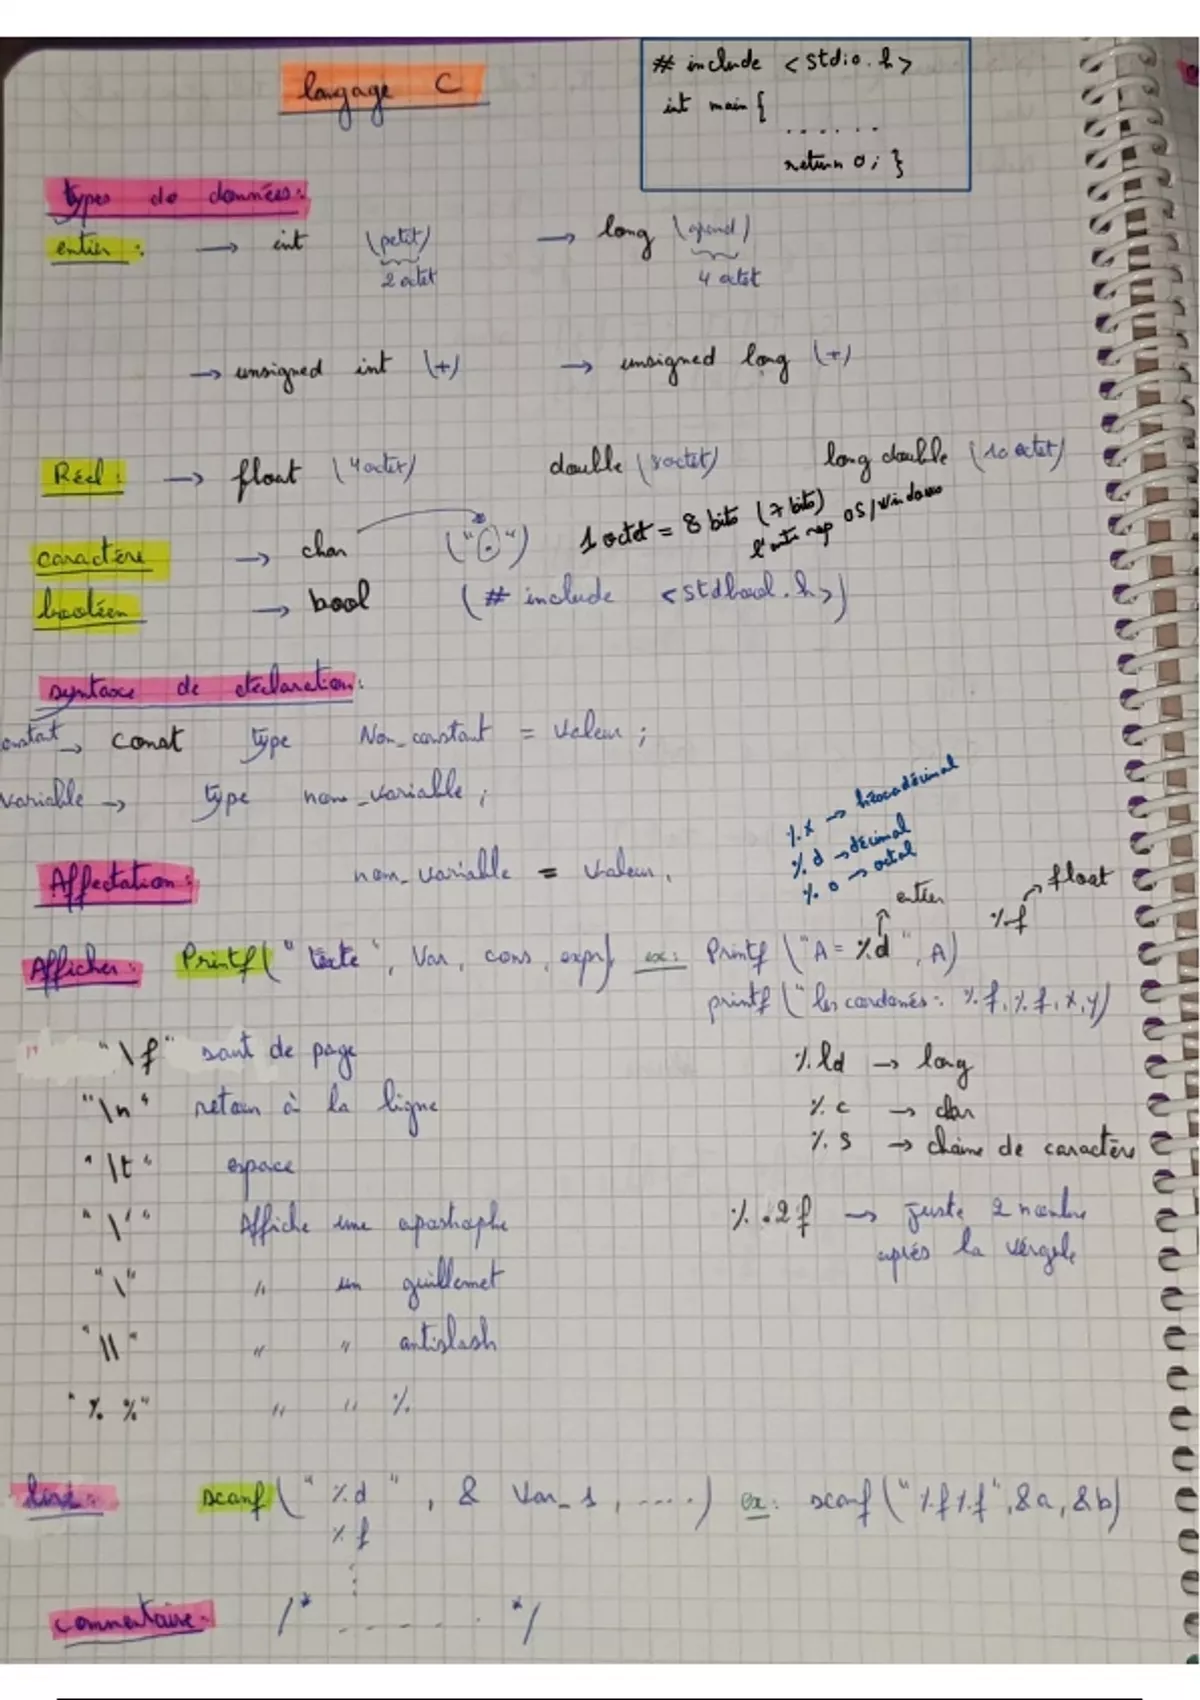 langage C
# include <stdio.h>
int main {
......
return 0; }
types de données:
entier : → int (petit) → long (grand)
2 octet 4 octet
→ unsigned int (+) → unsigned long (+)
Réel : → float (4 octet) double (8 octet) long double (10 octet)
caractère → char (".") 1 octet = 8 bits (7 bits)
OS/Windows
booléen → bool (# include <stdbool.h>)
syntaxe de declaration:
→ const type Nom_constant = Valeur ;
variable → type nom_variable ;
%x → hexadécimal
%d → décimal
%o → octal
Affectation: nom_variable = Valeur ,
entier %f → float
Afficher: Printf(" texte ", Var, cons, expr) ex: Printf ("A = %d ", A)
printf (" les cordonés: %f, %f, x, y)
"\f" saut de page
%ld → long
"\n" retour à la ligne
%c → char
%s → chaine de caractère
"\t" espace
"\'" Affiche une apostrophe
%.2f → juste 2 nombre
après la vérgule
"\" " un guillemet
"\\" " " antislash
"% %" " " %
lire: scanf (" %d ", & Var_1, ....) ex: scanf ("%f%f", &a, &b)
% f
commentaire: /* ..... */